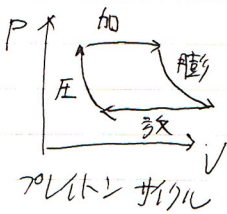 P
加
膨
圧
放
V
ブレイトン サイクル